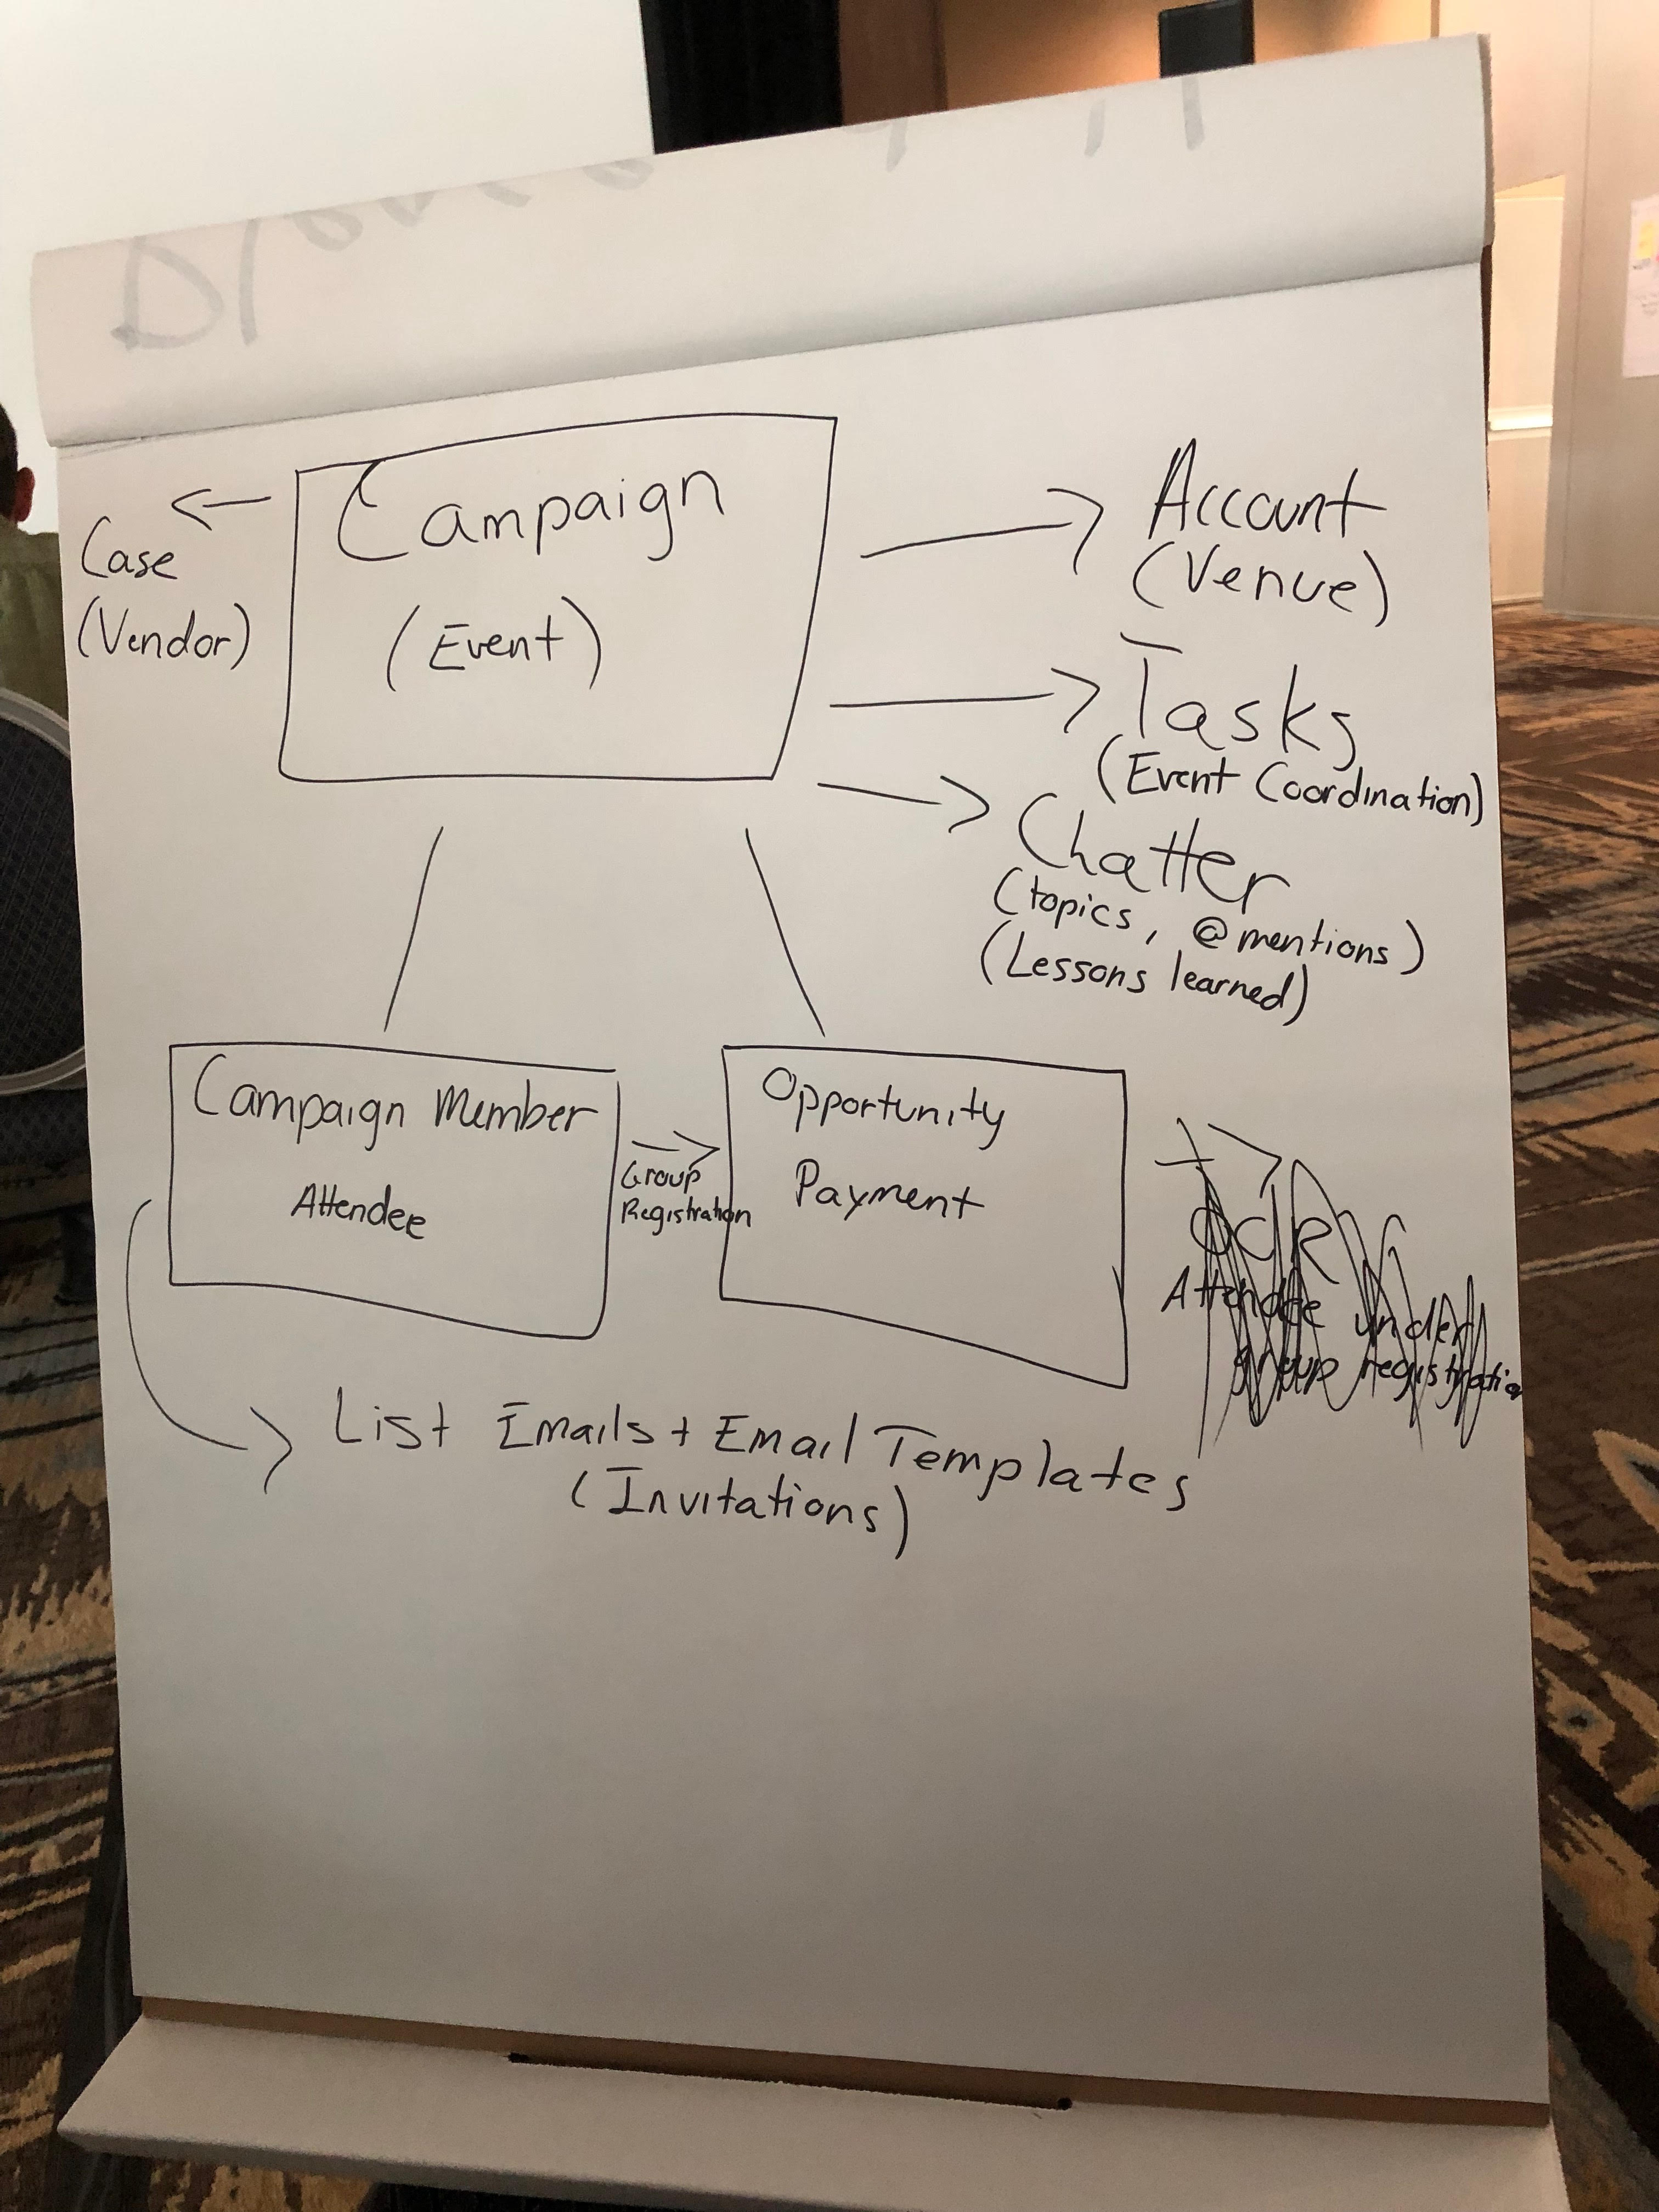 Campaign
(Event)
Case
(Vendor)
Account
(Venue)
Tasks
(Event Coordination)
Chatter
(topics, @mentions)
(Lessons learned)
Campaign Member
Attendee
Group
Registration
Opportunity
Payment
OCR
Attendee under
group registration
List Emails + Email Templates
(Invitations)